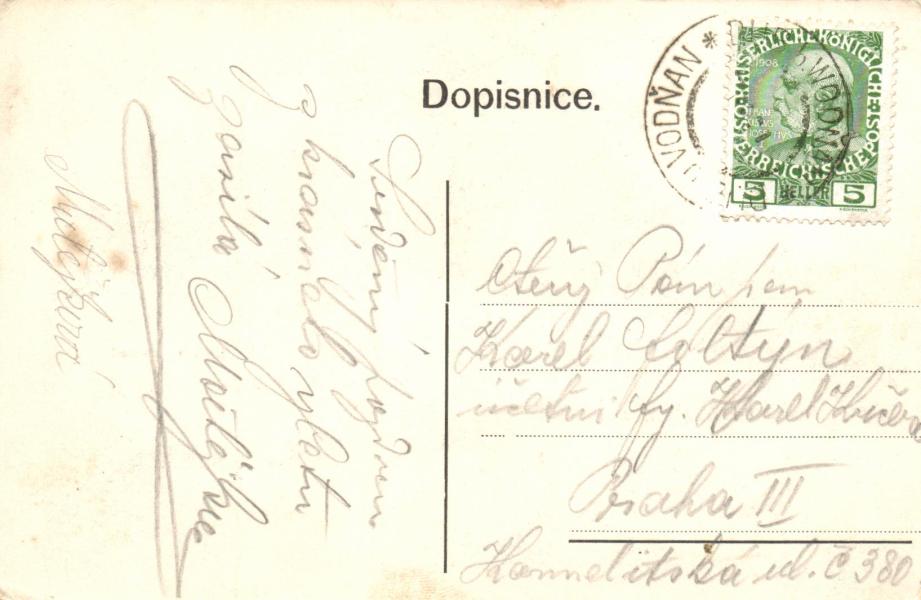 Dopisnice.
VODŇAN * WODŇAN
KAISERLICHE KÖNIGLICHE
1908
ÖSTERREICHISCHE POST
5 HELLER 5
Srdečný pozdrav
z krásného výletu
zasílá Matějka
Matějková
Ctěný Pán pan
Karel Soltýn
účetní fy. Karel Kučera
Praha III
Karmelitská ul. č 380